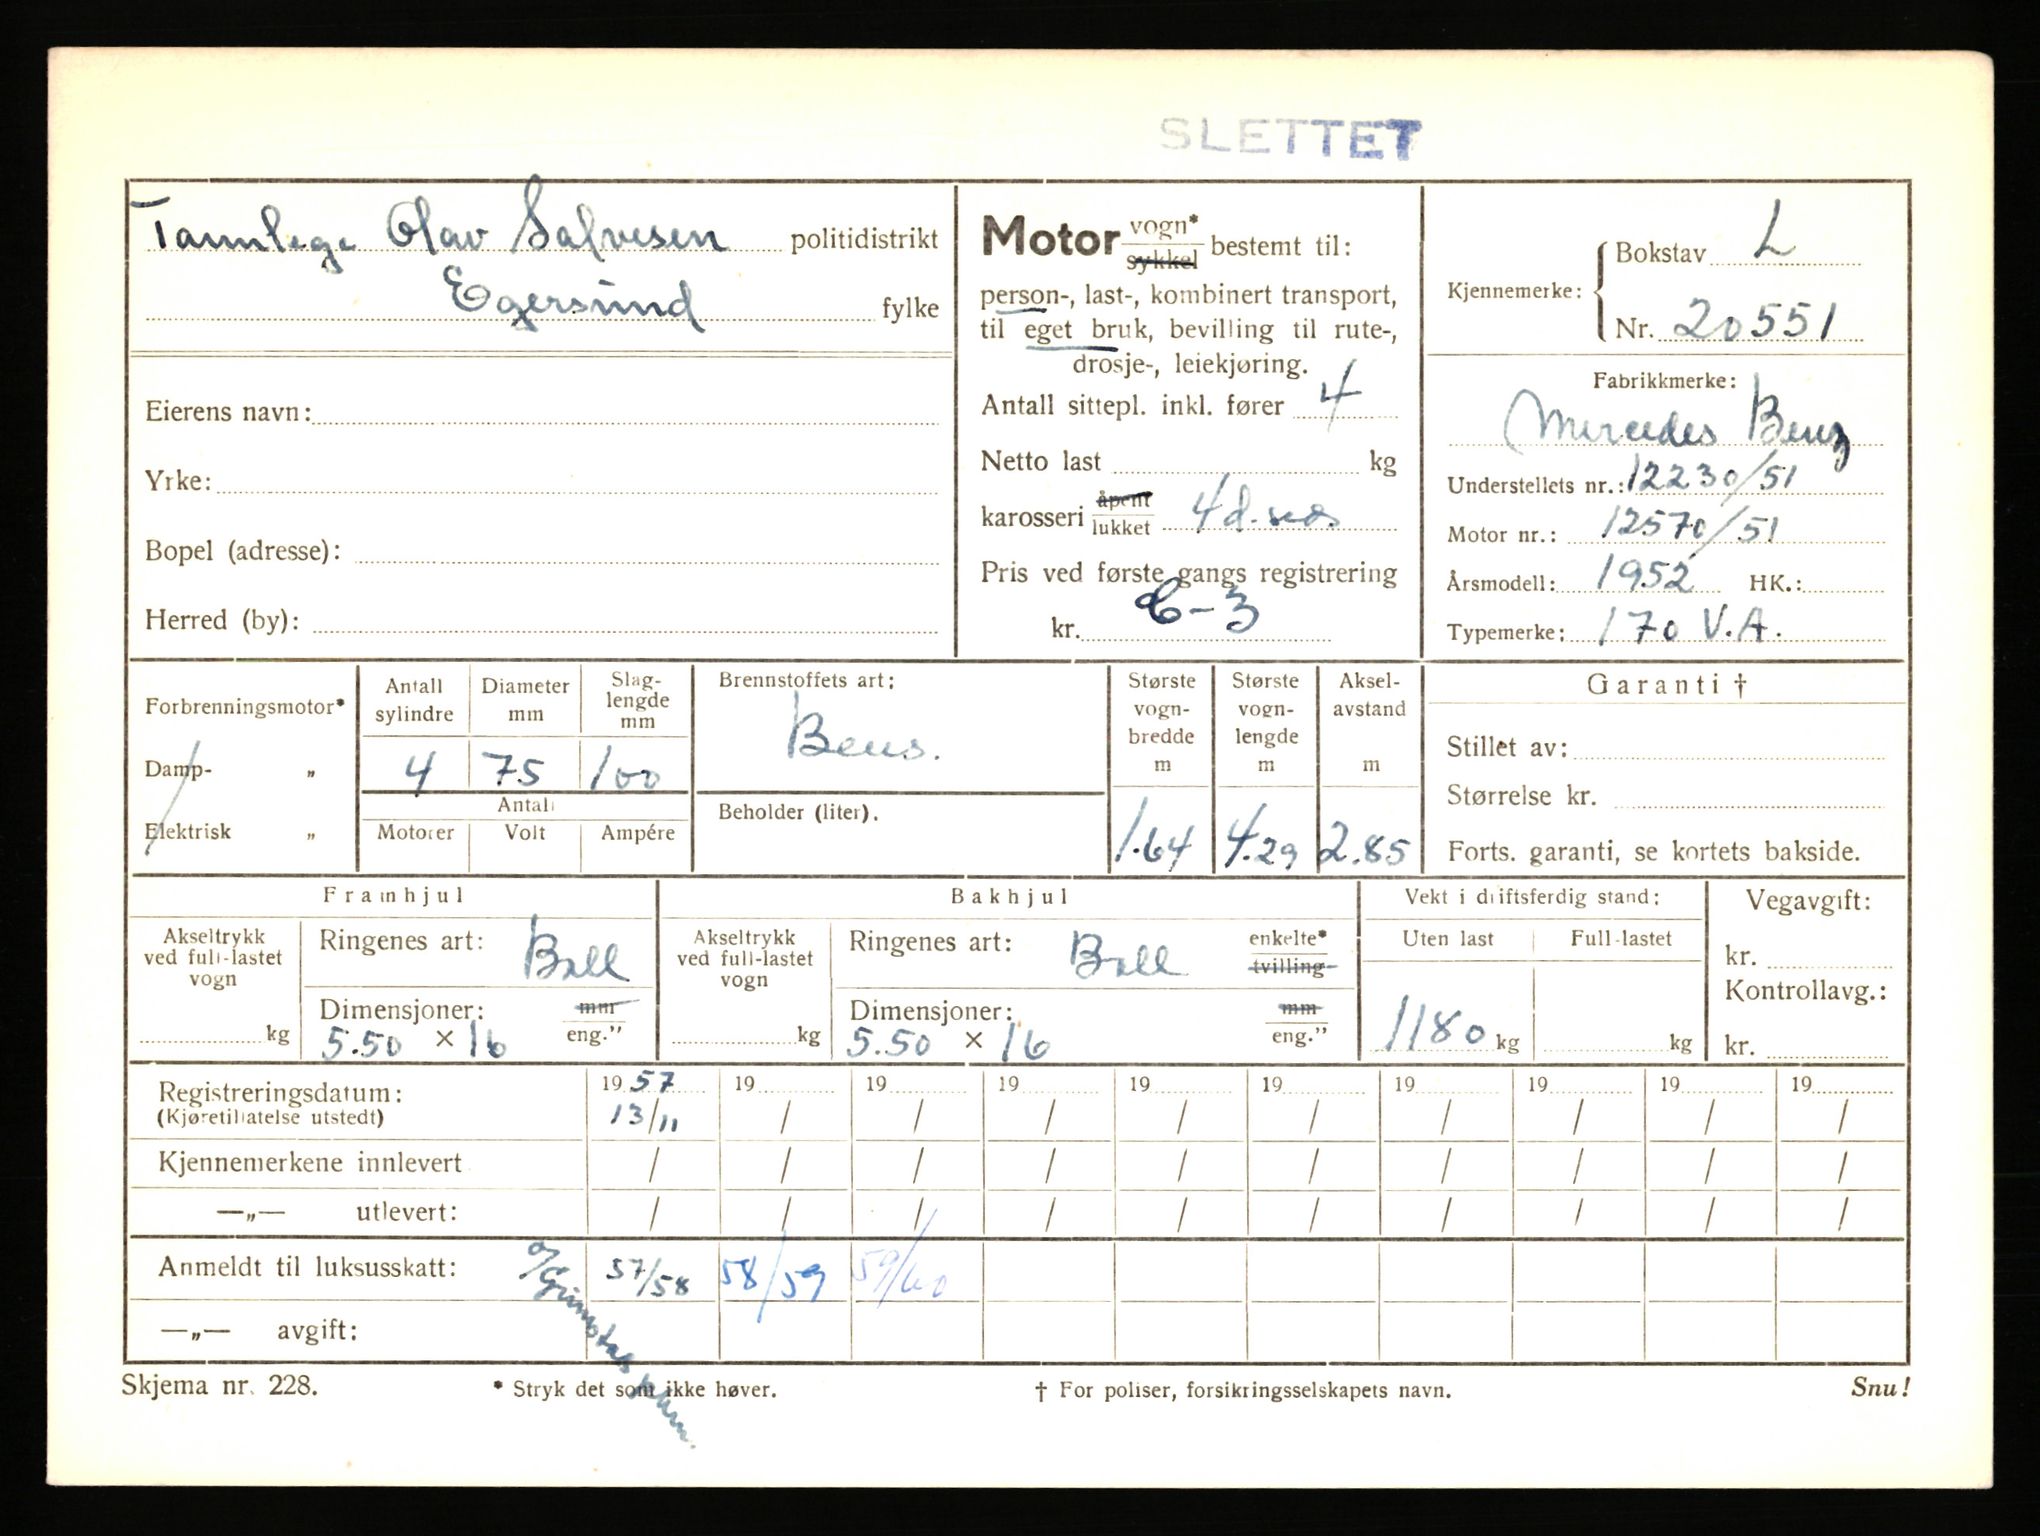 SLETTET
Tannlege Olav Salvesen politidistrikt
Egersund fylke
Eierens navn:
Yrke:
Bopel (adresse):
Herred (by):
Motor vogn* sykkel bestemt til:
person-, last-, kombinert transport,
til eget bruk, bevilling til rute-,
drosje-, leiekjøring.
Antall sittepl. inkl. fører 4
Netto last kg
karosseri åpent lukket 4 d.
Pris ved første gangs registrering
kr. C-3
Kjennemerke: Bokstav L
Nr. 20551
Fabrikkmerke:
Mercedes Benz
Understellets nr.: 12230/51
Motor nr.: 12570/51
Årsmodell: 1952 HK.:
Typemerke: 170 V.A.
Forbrenningsmotor*
Damp- "
Elektrisk "
Antall sylindre Diameter mm Slag-lengde mm
4 75 100
Antall
Motorer Volt Ampére
Brennstoffets art:
Bens.
Beholder (liter).
Største vogn-bredde m Største vogn-lengde m Aksel-avstand m
1.64 4.29 2.85
Garanti †
Stillet av:
Størrelse kr.
Forts. garanti, se kortets bakside.
Framhjul
Akseltrykk ved full-lastet vogn
kg
Ringenes art: Ball
Dimensjoner: mm
5.50 × 16 eng."
Bakhjul
Akseltrykk ved full-lastet vogn
kg
Ringenes art: Ball enkelte* tvilling
Dimensjoner: mm
5.50 × 16 eng."
Vekt i driftsferdig stand:
Uten last Full-lastet
1180 kg kg
Vegavgift:
kr.
Kontrollavg.:
kr.
Registreringsdatum: 1957 19 19 19 19 19 19 19 19 19
(Kjøretillatelse utstedt) 13/11 / / / / / / / / /
Kjennemerkene innlevert / / / / / / / / / /
—„— utlevert: / / / / / / / / / /
Anmeldt til luksusskatt: 57/58 58/59 59/60
—„— avgift:
Skjema nr. 228. * Stryk det som ikke høver. † For poliser, forsikringsselskapets navn. Snu!